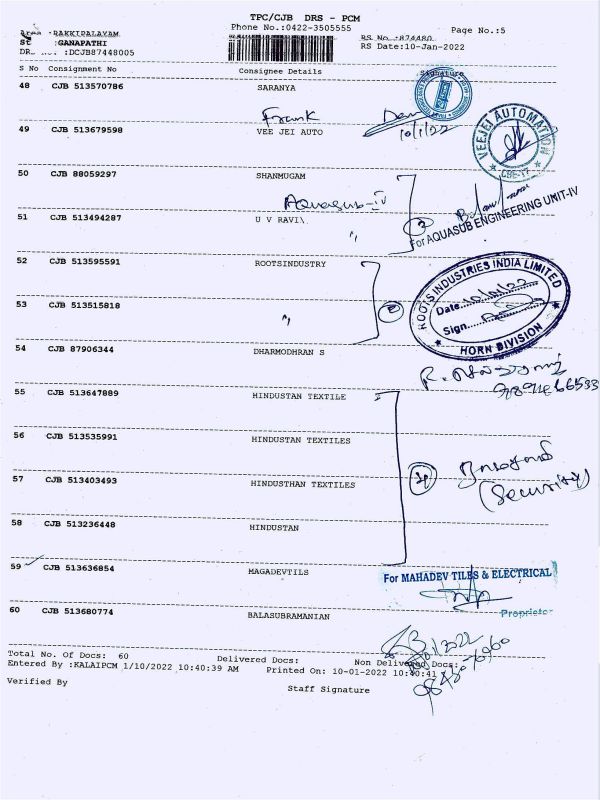 TPC/CJB DRS - PCM
Phone No.:0422-3505555
Page No.:5
Area :RAKKIPALAYAM
St :GANAPATHI
RS No.:874480
DRS No. :DCJB87448005
RS Date:10-Jan-2022
S No Consignment No Consignee Details Signature
48 CJB 513570786 SARANYA
Frank
10/1/22
49 CJB 513679598 VEE JEI AUTO
VEEJEI AUTOMATION
CBE-17
50 CJB 88059297 SHANMUGAM
Aquasub-IV
2
For AQUASUB ENGINEERING UNIT-IV
51 CJB 513494287 U V RAVI
"
52 CJB 513595591 ROOTSINDUSTRY
ROOTS INDUSTRIES INDIA LIMITED
Date
Sign
HORN DIVISION
53 CJB 513515818
"
2
54 CJB 87906344 DHARMODHRAN S
55 CJB 513647889 HINDUSTAN TEXTILE
56 CJB 513535991 HINDUSTAN TEXTILES
57 CJB 513403493 HINDUSTHAN TEXTILES
4
(Security)
58 CJB 513236448 HINDUSTAN
59 CJB 513636854 MAGADEVTILS
For MAHADEV TILES & ELECTRICAL
Proprietor
60 CJB 513680774 BALASUBRAMANIAN
Total No. Of Docs: 60 Delivered Docs: Non Delivered Docs:
Entered By :KALAIPCM 1/10/2022 10:40:39 AM Printed On: 10-01-2022 10:40:41
Verified By
Staff Signature